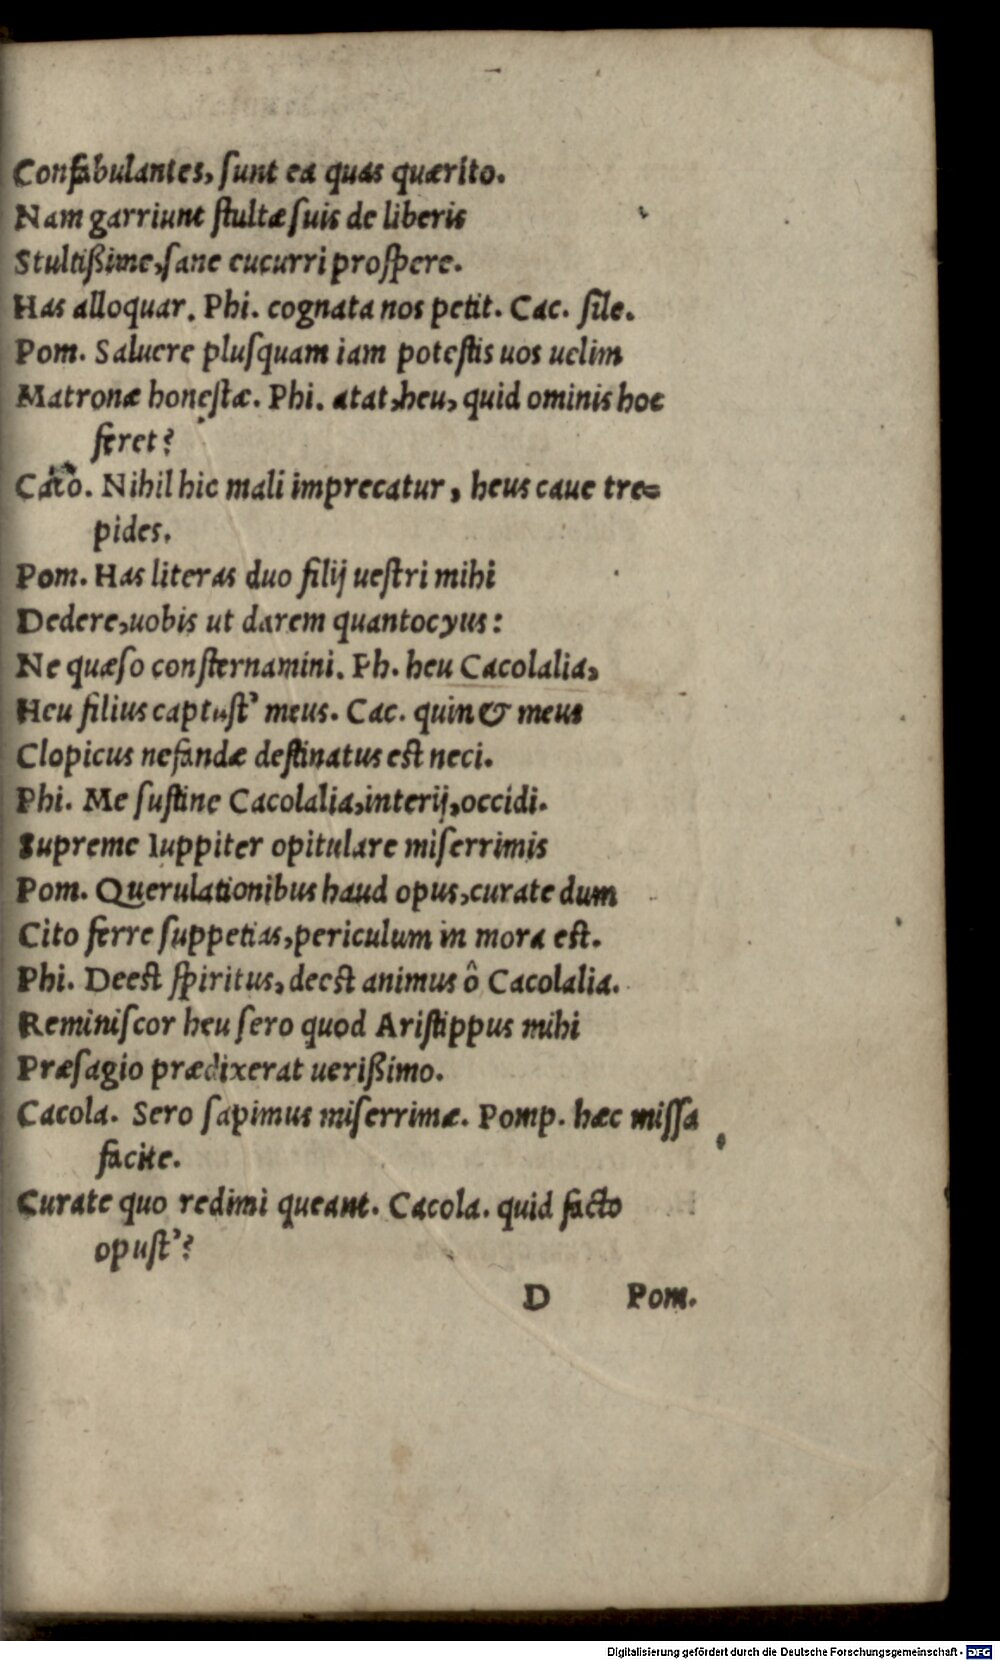 Confabulantes, ſunt ea quas quærito.
Nam garriunt ſtultæ ſuis de liberis
Stultißime, ſane cucurri proſpere.
Has alloquar. Phi. cognata nos petit. Cac. ſile.
Pom. Saluere pluſquam iam poteſtis uos uelim
Matronæ honeſtæ. Phi. atat, heu, quid ominis hoc
feret?
Caco. Nihil hic mali imprecatur, heus caue tre=
pides.
Pom. Has literas duo filij ueſtri mihi
Dedere, uobis ut darem quantocyus:
Ne quæſo conſternamini. Ph. heu Cacolalia,
Heu filius captuſt' meus. Cac. quin & meus
Clopicus nefandæ deſtinatus eſt neci.
Phi. Me ſuſtine Cacolalia, interij, occidi.
Supreme Iuppiter opitulare miſerrimis
Pom. Querulationibus haud opus, curate dum
Cito ferre ſuppetias, periculum in mora eſt.
Phi. Deeſt ſpiritus, deeſt animus ô Cacolalia.
Reminiſcor heu ſero quod Ariſtippus mihi
Præſagio prædixerat uerißimo.
Cacola. Sero ſapimus miſerrimæ. Pomp. hæc miſſa
facite.
Curate quo redimi queant. Cacola. quid facto
opuſt'?
D Pom.
Digitalisierung gefördert durch die Deutsche Forschungsgemeinschaft - DFG